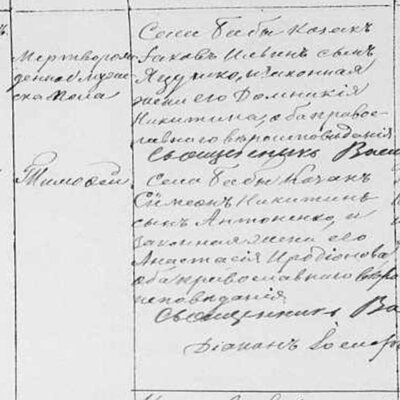 Мертворож
денъ мужес
ска пола
Села Бабы Козакъ
Іаковъ Ильинъ сынъ
Яцушко, и законная
жена его Домникія
Никитина, оба право-
славнаго вѣроисповѣданія
Священникъ Васи
Тимофей
Села Бабы Козакъ
Симеонъ Никитинъ
сынъ Антоненко, и
законная жена его
Анастасія Иродіонова
оба православнаго вѣро
исповѣданія
Священникъ Ва
Діаконъ